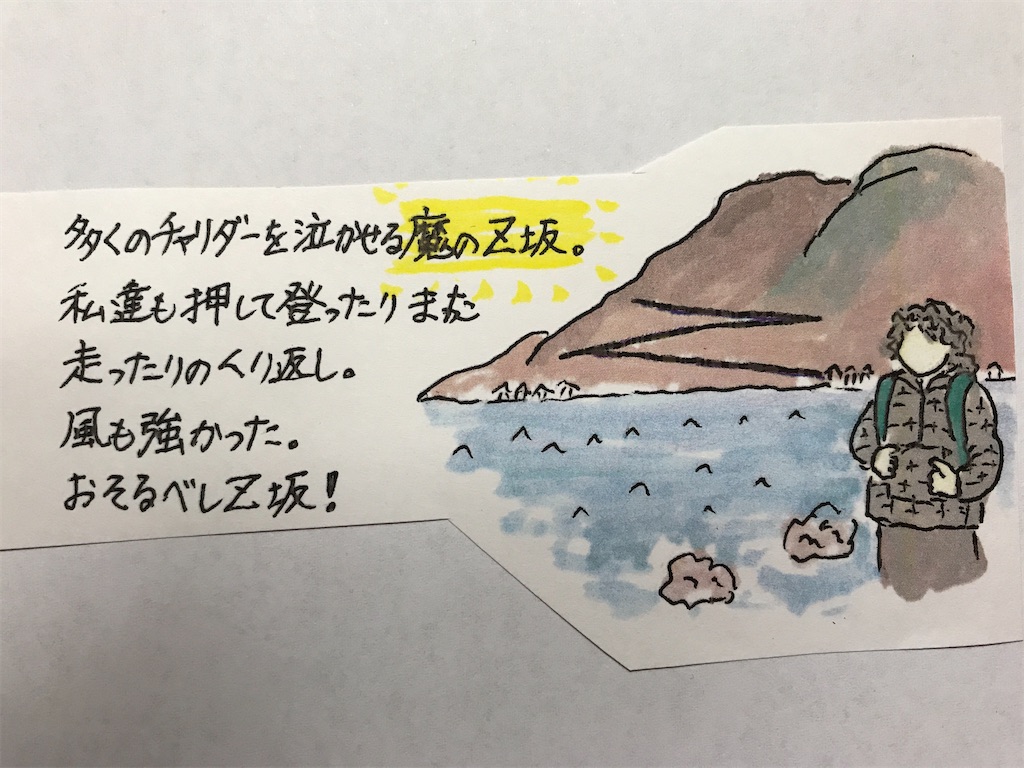 多くのチャリダーを泣かせる魔のZ坂。
私達も押して登ったりまた
走ったりのくり返し。
風も強かった。
おそるべしZ坂!